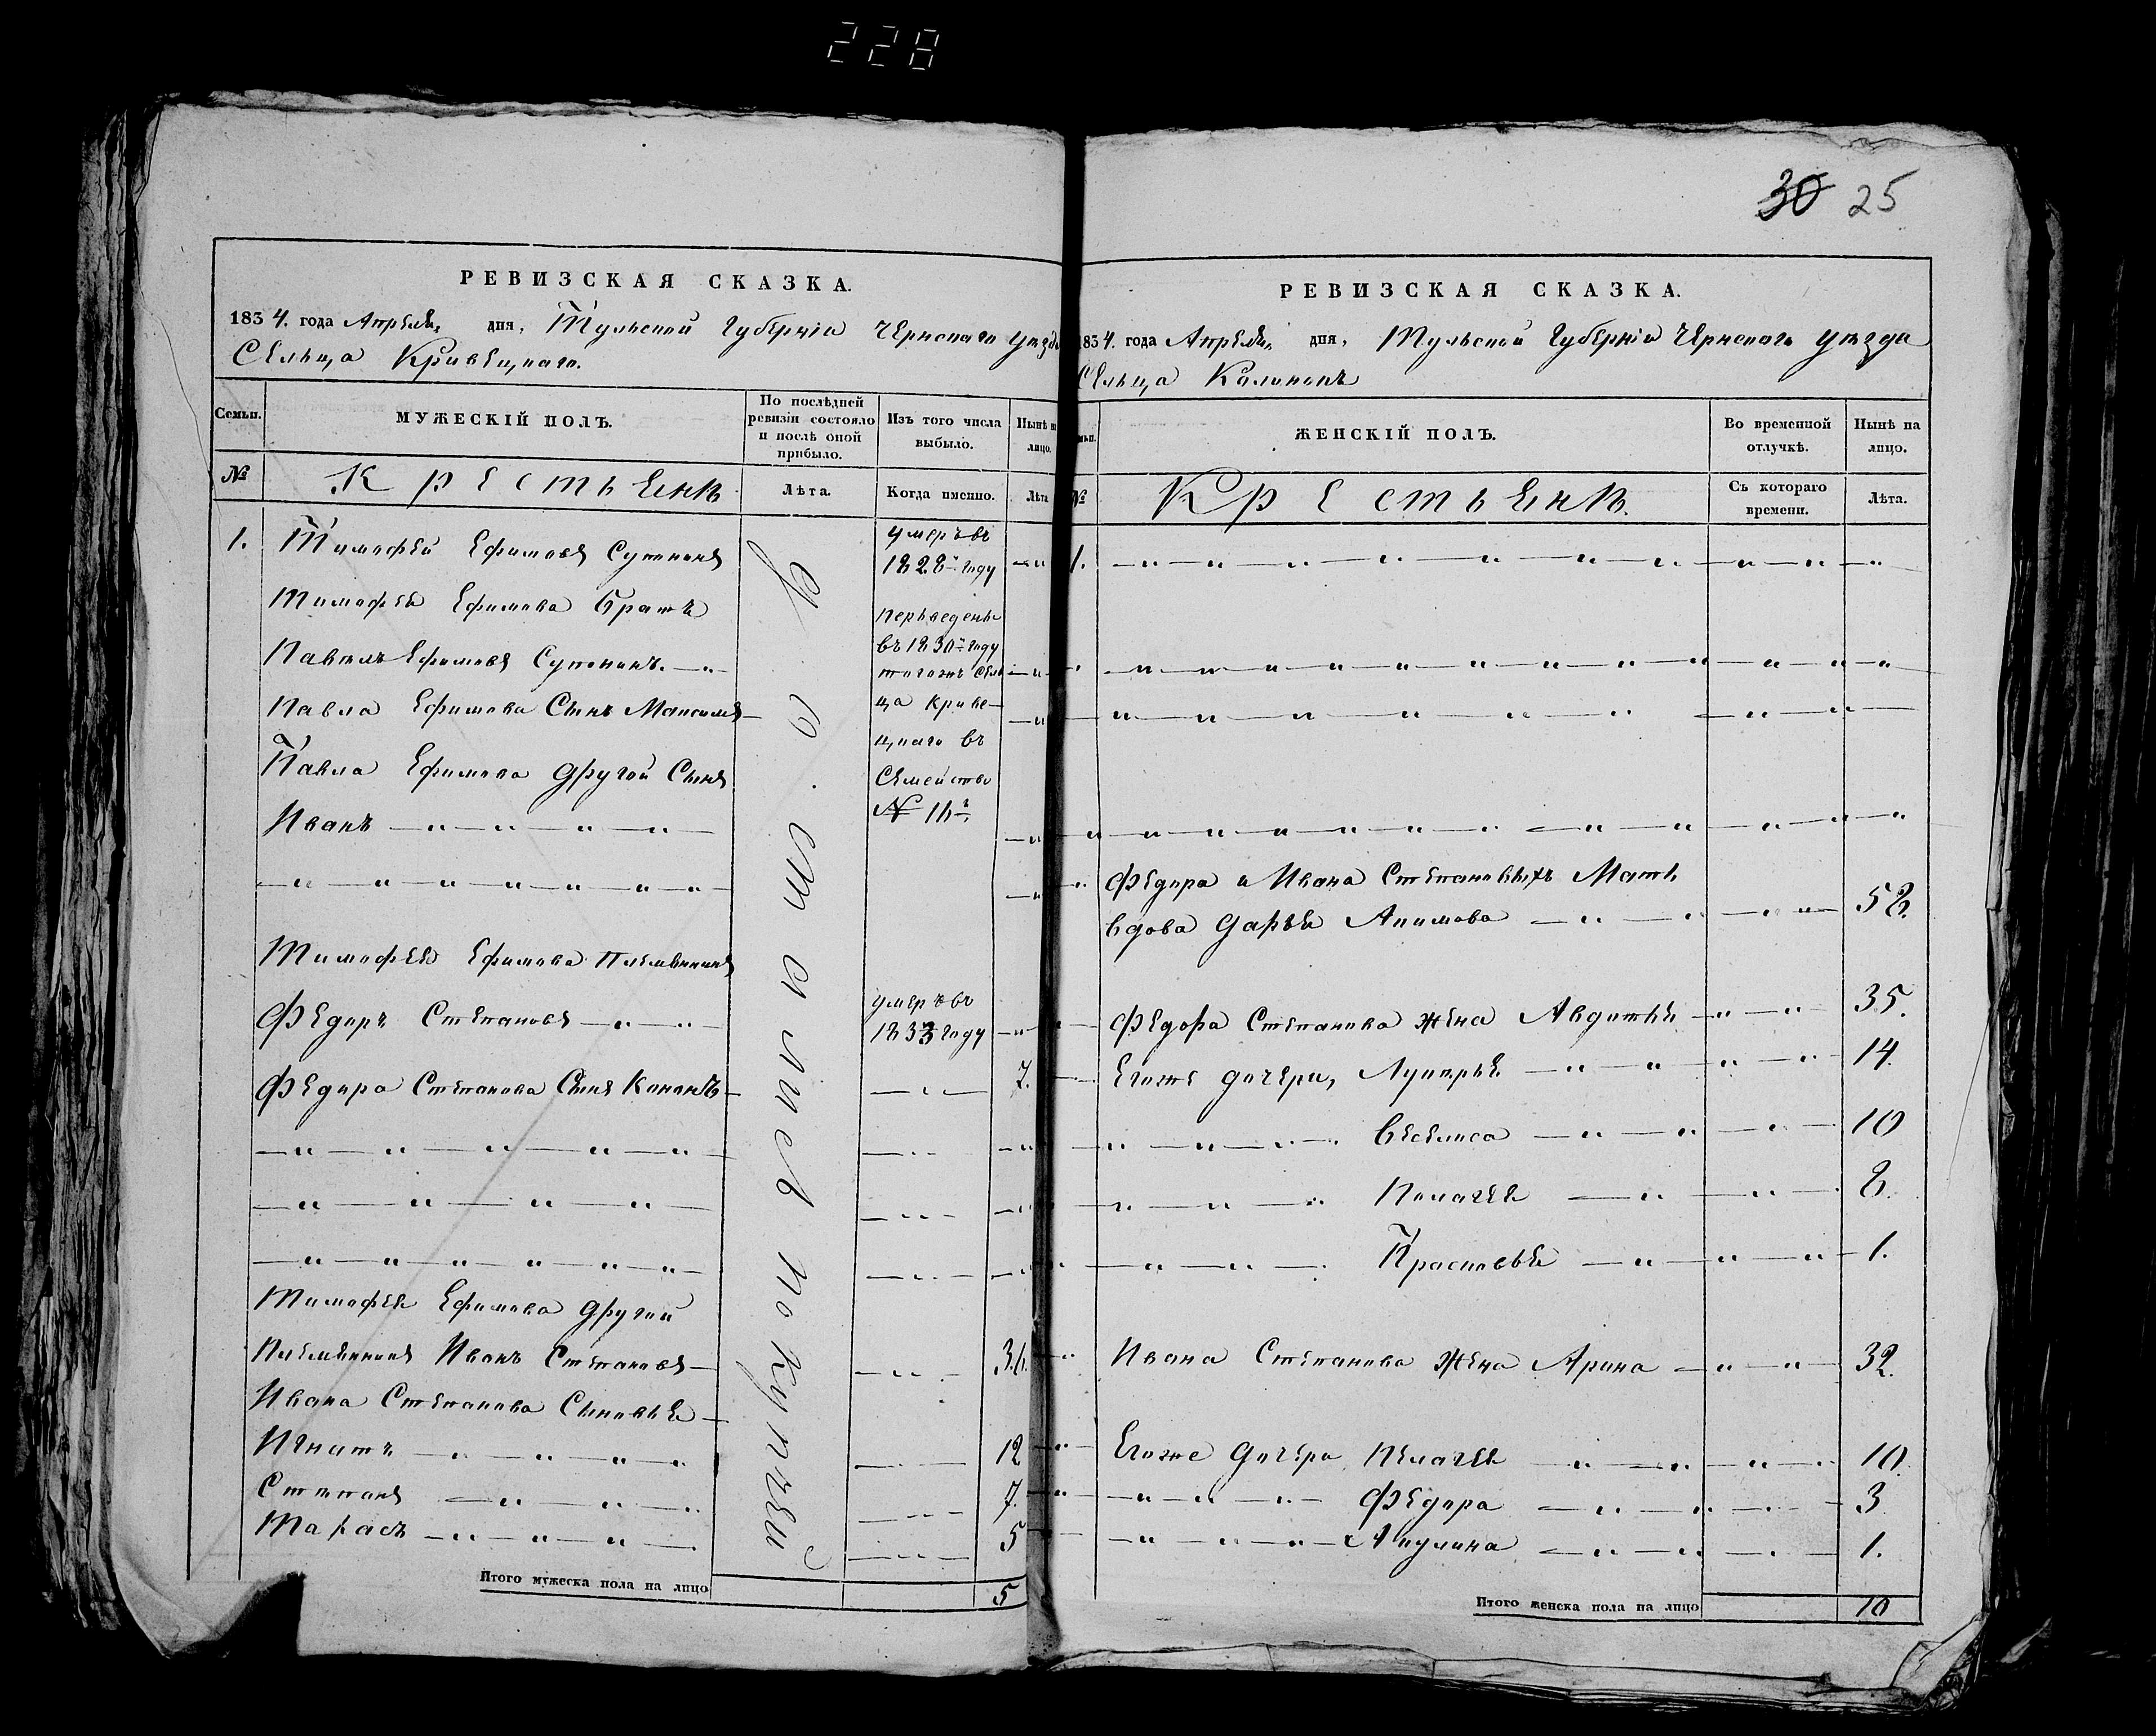 228
30 25
РЕВИЗСКАЯ СКАЗКА.
1834. года Апреля, дня, Тульской Губернiи Чернскаго уезда
Сельца Кривецкаго.
Семьи.
МУЖЕСКІЙ ПОЛЪ.
По послѣдней ревизіи состояло и послѣ оной прибыло.
Изъ того числа выбыло.
Нынѣ на лицо.
№
Крестьянъ
Лѣта.
Когда именно.
Лѣта
1. Тимофей Ефимовъ
умеръ въ
1828м году
Тимофея Ефимова братъ
переведены
въ 1830м году
Павелъ Ефимовъ
тогожъ сель
Павла Ефимова Сынъ Максимъ
ца Криве-
цкаго въ
Павла Ефимова другой Сынъ
Семейство
Иванъ
№ 16й
Тимофея Ефимова Племянникъ
Федоръ Степановъ
умеръ въ
1833 году
Федора Степанова Сынъ Кононъ 7.
Тимофея Ефимова другой
Племянникъ Иванъ Степановъ 36.
Ивана Степанова Сыновья
Игнатъ 12
Степанъ 7.
Тарасъ 5
Достались покупкой
Итого мужеска пола на лицо 5
РЕВИЗСКАЯ СКАЗКА.
1834. года Апреля, дня, Тульской Губернiи Чернскаго уезда
Сельца
ЖЕНСКІЙ ПОЛЪ.
Во временной отлучкѣ.
Нынѣ на лицо.
№
Крестьянъ.
Съ котораго времени.
Лѣта.
1.
Федора и Ивана Степановыхъ Мать
вдова Дарья Акимова 58.
Федора Степанова жена Авдотья 35.
Егоже дочери, Лукерья 14.
Василиса 10
Пелагея 8.
Прасковья 1.
Ивана Степанова жена Арина 32.
Егоже дочери Пелагея 10.
Федора 3
Акулина 1.
Итого женска пола на лицо 10